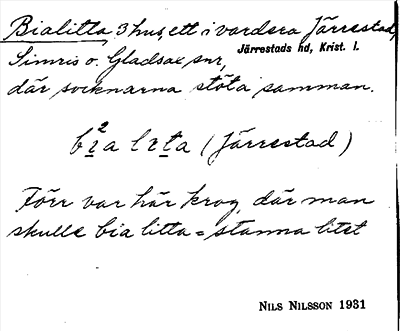 Bialitta, 3 hus, ett i vardera Järrestad,
Simris o. Gladsax snr,
Järrestads hd, Krist. l.
där socknarna stöta samman.
bi²a lita (Järrestad)
Förr var här krog, där man
skulle bia litta = stanna litet
NILS NILSSON 1931